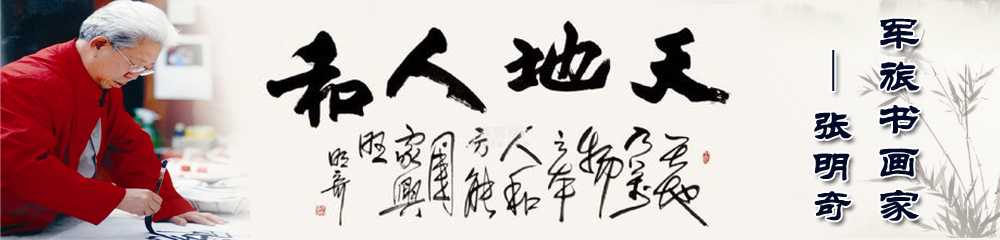 军旅书画家
—张明奇
天地人和
天地
乃萬
物
之本
人和
方能
國
家興
旺
明奇